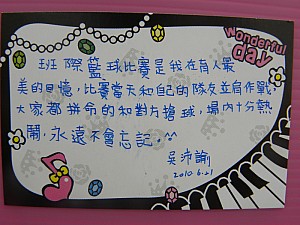 Wonderful
day
班際籃球比賽是我在有人最
美的回憶，比賽當天和自己的隊友並肩作戰，
大家都拼命的和對方搶球，場內十分熱
鬧，永遠不會忘記。^^
吳沛諭
2010.6.21